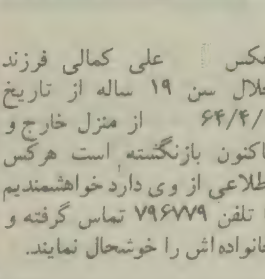 عکس علی کمالی فرزند
جلال سن ۱۹ ساله از تاریخ
۶۴/۴/ از منزل خارج و
تاکنون بازنگشته است هرکس
اطلاعی از وی دارد خواهشمندیم
با تلفن ۷۹۶۷۷۹ تماس گرفته و
خانواده‌اش را خوشحال نمایند.